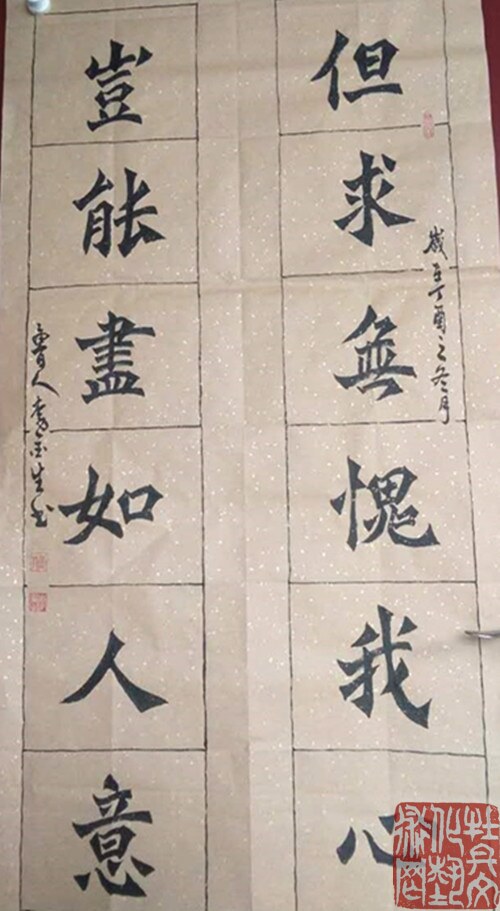 歲在丁酉之冬月
但求無愧我心
豈能盡如人意
魯人李金生书